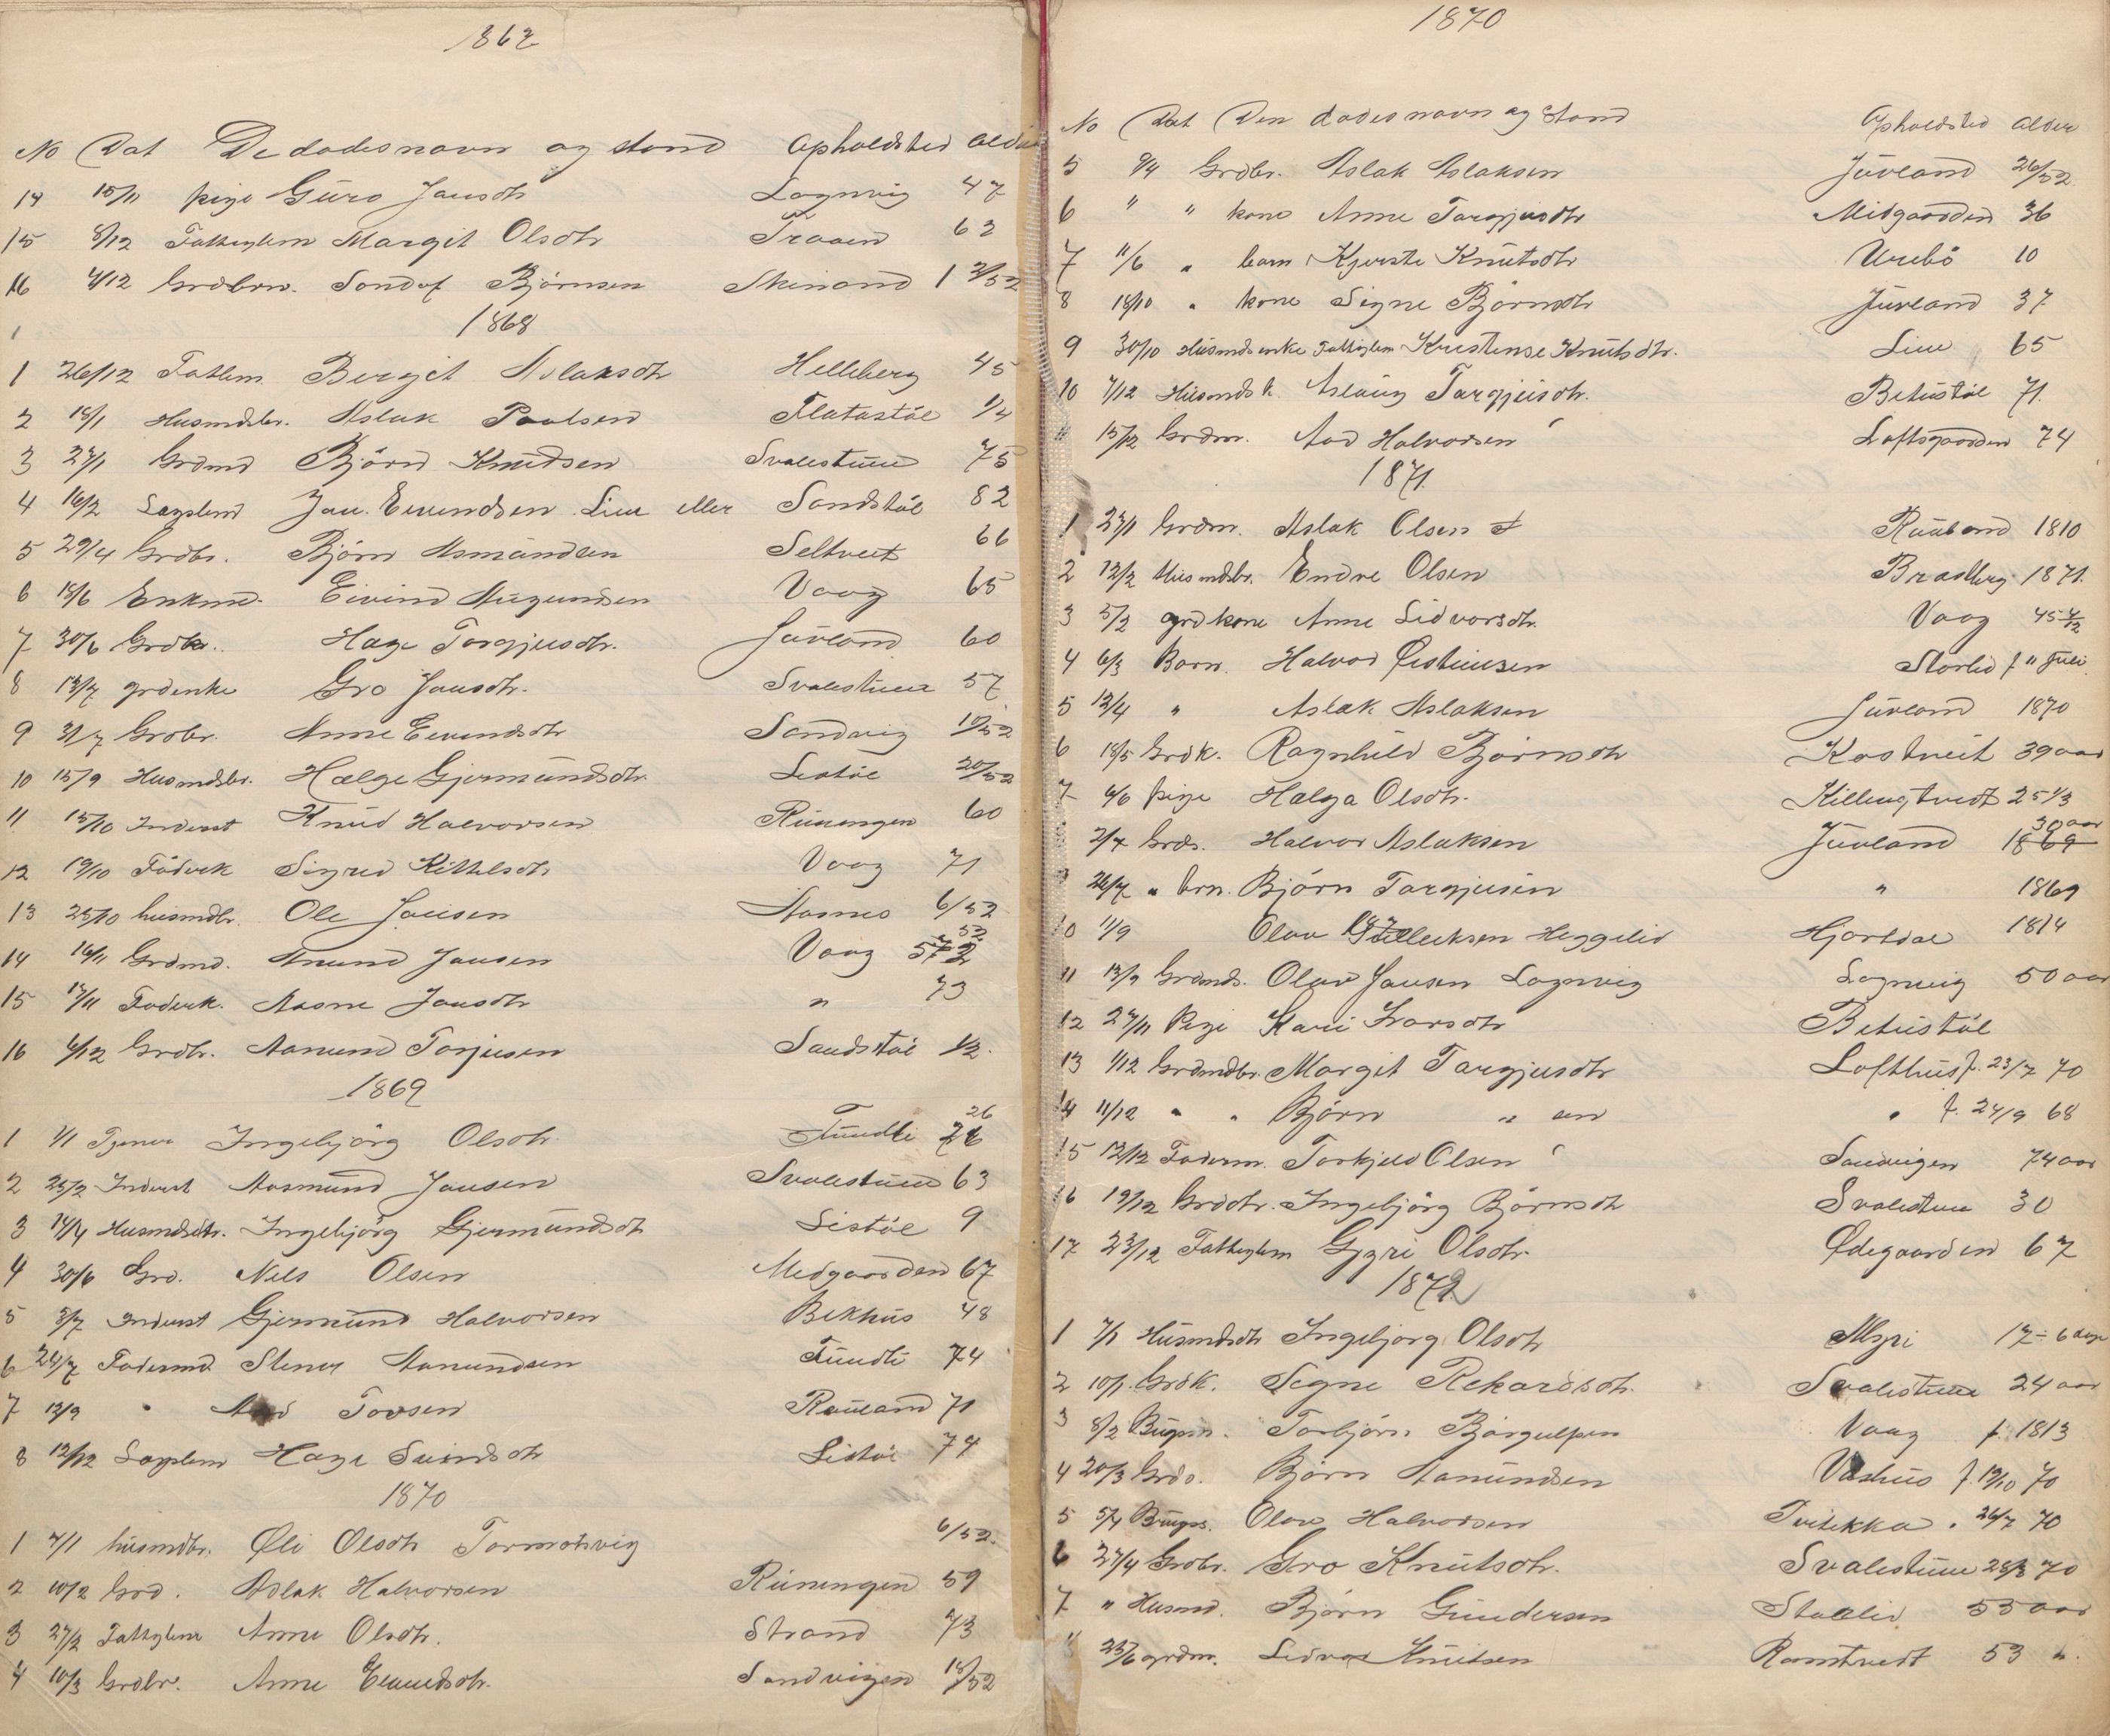 1867
No Dat De dødes navn og stand Opholdsted alder
14 15/11 pige Guro Jansdtr Lognvig 47
15 8/12 Fattiglem Margit Olsdtr Traaen 63
16 4/12 Grdbrn. Sondof Bjørnsen Skinand 1 2/52
1868
1
1 26/12 Fatlem Bergit Aslaksdtr Helleberg 45
2 18/1 Husmdsbr. Aslak Paalsen Flatastøl 1/4
3 27/1 Grdmd Bjørn Knudsen Svalestuen 75
4 16/2 Lægslemd Jan. Evendsen Lien eller Sandstøl 82
5 29/4 Grdbr. Bjørn Asmundsen Seltveit 66
6 18/6 Enkmd. Eivind Augundsen Vaag 65
7 30/6 Grdk. Hage Torgjusdtr. Juvland 60
8 13/7 grdenke Gro Jansdtr. Svalestuen 57
9 31/7 Grdbr. Anne Evendsdtr Sandvig 10/52
10 15/9 Husmdsbr. Hælge Gjermundsdtr. Listøl 20/52
11 15/10 Inderst Knud Halvorsen Rünengen 60
12 19/10 Föderk Sigrid Kittilsdtr Vaag 71
13 25/10 husmdbr. Ole Jansen Aamos 6/52
14 16/11 Grdmd. Anund Jansen Vaag 52
15 17/11 Foderk. Aasne Jansdtr " 73
16 6/12 Grdbr. Aanund Torjusen Sandstøl 1/2.
1869
1 1/1 Tjener Ingebjörg Olsdtr. Tundli 26
2 25/2 Inderst Aasmund Jansen Svalestuen 63
3 14/4 Husmdsdtr. Ingebjörg Gjermundsdtr Listøl 9
4 30/6 Grd. Nils Olsen Midgaarden 67
5 3/7 Inderst Gjermund Halvorsen Bekhus 48
6 24/7 Födermd. Stener Aanundsen Tundli 74
7 12/9 " Aad Tovsen Rauland 71
8 12/12 Lægslem Hage Svindsdtr Listøl 74
1870
1 7/1 husmdbr. Øli Olsdtr Tormotsvig 6/52.
2 10/2 Grd. Aslak Halvorsen Rünengen 59
3 27/2 Fattiglem Anne Olsdtr. Strand 73
4 10/3 Grdbr. Anne Evendsdtr. Sandvigen 18/52
1870
No Dat Den dødes navn og Stand Opholdsted alder
5 9/4 Grdbr. Aslak Aslaksen Juvland 26/52
6 " " kone Anne Targjusdtr Midgaarden 36
7 11/6 " barn Kjerste Knutsdtr Urebö 10
8 18/10 " kone Signe Björnsdtr Juvland 37
9 30/10 Husmdsenke Fattiglem Kristense Knutsdtr. Lien 65
10 7/12 Husmdsk. Aslaug Targjusdtr. Betustöl 71.
11 15/12 Grdm. Aad Halvorsen Loftsgaarden 74
1871.
1 27/1 Grdm. Aslak Olsen Rauland 1810
2 12/2 Husmdsbr. Endre Olsen Bradberg 1871.
3 5/2 grdkone Anne Lidvorsdtr. Vaag 45 4/12
4 6/3 Barn. Halvor Østensen Storlid f " Juli
5 12/4 " Aslak Aslaksen Juvland 1870
6 18/5 Grdk. Ragnhild Björnsdtr Kostveit 39 aar
7 4/6 pige Helga Olsdtr. Killingtvedt 25 1/3
30 aar
2/7 Grds. Halvor Aslaksen Juvland 1869
26/7 " brn. Björn Targjusen " 1869
10 11/9 Olav Gullecksen Heggelid Hjartdal 1814
11 13/9 Grdmds. Olav Jansen Lognvig Lognvig 50 aar
12 27/11 Pige Kari Ivarsdtr Betustöl
13 1/12 Grdmdbr. Margit Targjusdtr Lofthus f. 23/7 70
14 11/12 " " Björn " en " f. 24/9 68
15 12/12 Foderm. Torkjeld Olsen Sandvigen 74 aar
16 19/12 Grddtr. Ingebjörg Björnsdtr Svalestuen 30
17 23/12 Fattiglem Gyri Olsdtr. Ødegaarden 67
1872
1 7/1 Husmdsdtr Ingebjörg Olsdtr Myri 17 - 6 dage
2 10/1 Grdk. Signe Rekardsdtr. Svalestuen 24 aar
3 8/2 Bugsm. Torbjörn Björgulfsen Vaag f. 1813
4 20/3 Grds. Björn Aanundsen Vashus f. 19/10 70
5 5/4 Brugss. Olav Halvorsen Tvitekka " 26/7 70
6 27/4 Grdbr. Gro Knutsdtr. Svalestuen 28/3 70
7 " Husmd. Björn Gundersen Staalid 55 aar
" 23/6 grdm. Lidvor Knutsen Ramtvedt 53 ".